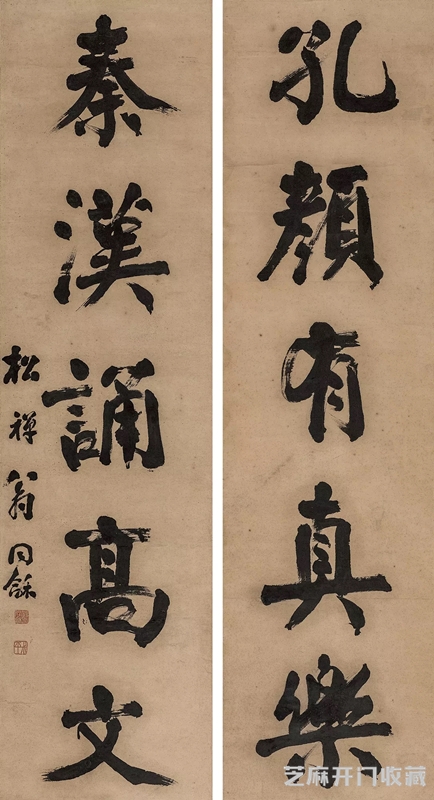 孔顏有真樂
秦漢誦高文
松禪翁同龢
芝麻开门收藏